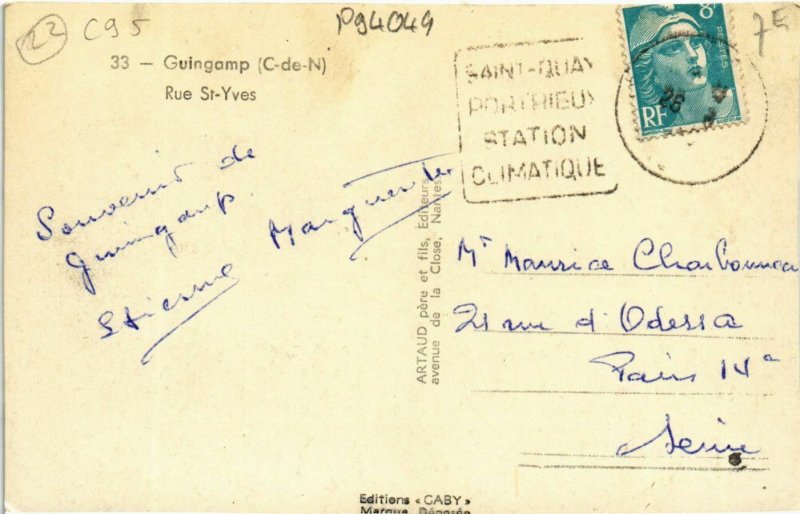 22
C95
P94049
7E
33 — Guingamp (C-de-N)
Rue St-Yves
SAINT-QUAY
PORTRIEUX
STATION
CLIMATIQUE
8F
POSTES
RF
28
Souvenir de
Guingamp
Etienne Marguerite
ARTAUD père et fils, Éditeurs
avenue de la Close, Nantes
Mr Maurice Charbonneau
21 rue d'Odessa
Paris 14e
Seine
Editions « GABY »
Marque Déposée